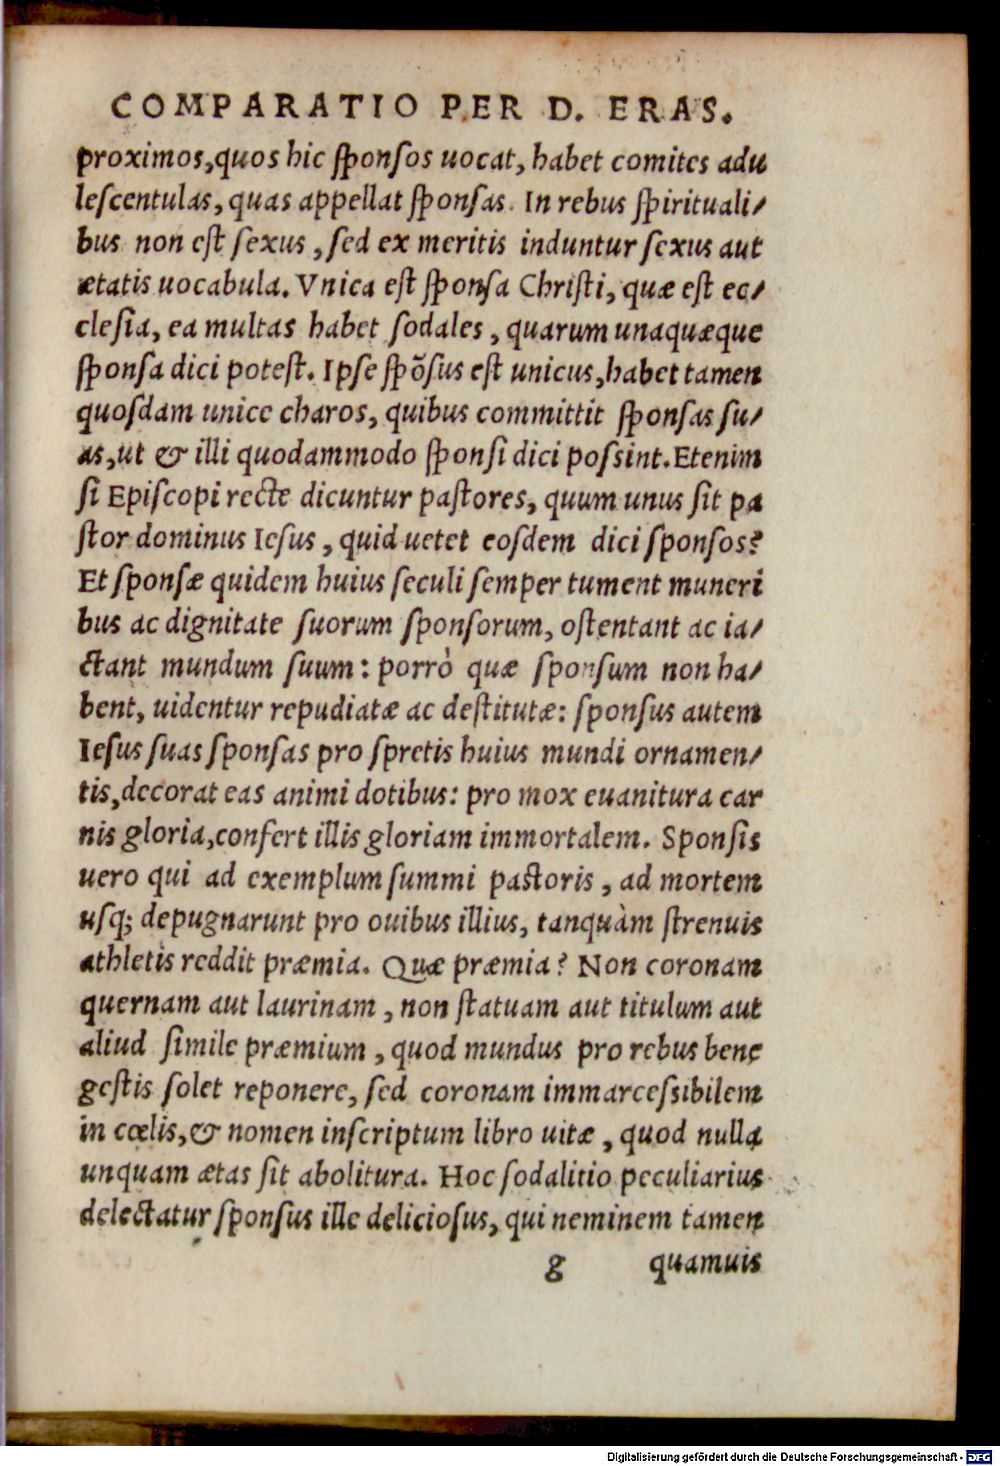 COMPARATIO PER D. ERAS.
proximos, quos hic sponsos uocat, habet comites adu
lescentulas, quas appellat sponsas. In rebus spirituali/
bus non est sexus, sed ex meritis induntur sexus aut
ætatis uocabula. Vnica est sponsa Christi, quæ est ec/
clesia, ea multas habet sodales, quarum unaquæque
sponsa dici potest. Ipse spõsus est unicus, habet tamen
quosdam unice charos, quibus committit sponsas su/
as, ut & illi quodammodo sponsi dici possint. Etenim
si Episcopi recte dicuntur pastores, quum unus sit pa
stor dominus Iesus, quid uetet eosdem dici sponsos?
Et sponsæ quidem huius seculi semper tument muneri
bus ac dignitate suorum sponsorum, ostentant ac ia/
ctant mundum suum: porrò quæ sponsum non ha/
bent, uidentur repudiatæ ac destitutæ: sponsus autem
Iesus suas sponsas pro spretis huius mundi ornamen/
tis, decorat eas animi dotibus: pro mox euanitura car
nis gloria, confert illis gloriam immortalem. Sponsis
uero qui ad exemplum summi pastoris, ad mortem
usq; depugnarunt pro ouibus illius, tanquàm strenuis
athletis reddit præmia. Quæ præmia? Non coronam
quernam aut laurinam, non statuam aut titulum aut
aliud simile præmium, quod mundus pro rebus bene
gestis solet reponere, sed coronam immarcessibilem
in cœlis, & nomen inscriptum libro uitæ, quod nulla
unquam ætas sit abolitura. Hoc sodalitio peculiarius
delectatur sponsus ille deliciosus, qui neminem tamen
g quamuis
Digitalisierung gefördert durch die Deutsche Forschungsgemeinschaft - DFG